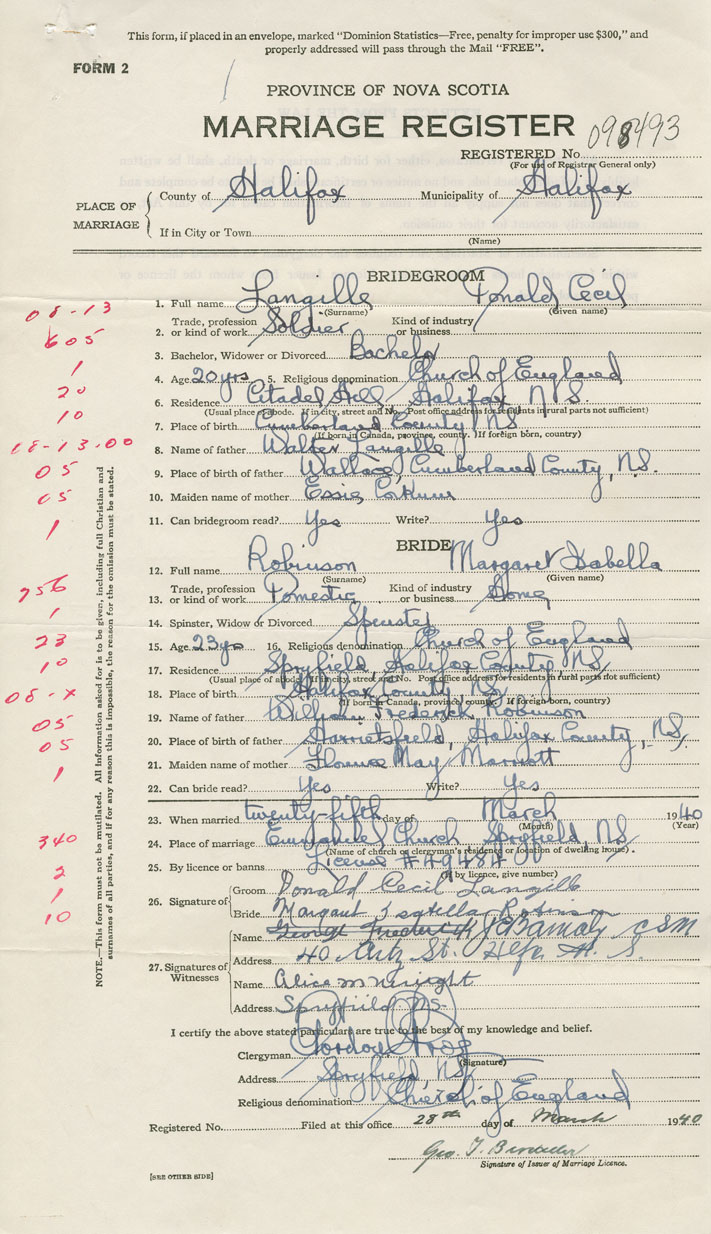 This form, if placed in an envelope, marked "Dominion Statistics—Free, penalty for improper use $300," and
properly addressed will pass through the Mail "FREE".
FORM 2
PROVINCE OF NOVA SCOTIA
MARRIAGE REGISTER
098493
REGISTERED No.
(For use of Registrar General only)
PLACE OF MARRIAGE
County of Halifax Municipality of Halifax
If in City or Town
(Name)
BRIDEGROOM
08-13
1. Full name Langille Donald Cecil
(Surname) (Given name)
605
2. Trade, profession or kind of work Soldier Kind of industry or business
1
3. Bachelor, Widower or Divorced Bachelor
20
4. Age 20 yrs 5. Religious denomination Church of England
10
6. Residence Citadel Hill, Halifax N.S.
(Usual place of abode. If in city, street and No. Post office address for residents in rural parts not sufficient)
08-13.00
7. Place of birth Cumberland County NS
(If born in Canada, province, county. If foreign born, country)
8. Name of father Walter Langille
05
9. Place of father Wallace, Cumberland County, N.S.
05
10. Maiden name of mother Essie Corkum
1
11. Can bridegroom read? Yes Write? Yes
BRIDE
12. Full name Robinson Margaret Isabella
(Surname) (Given name)
756
13. Trade, profession or kind of work Domestic Kind of industry or business Home
1
14. Spinster, Widow or Divorced Spinster
23
15. Age 23 yrs 16. Religious denomination Church of England
10
17. Residence Spryfield, Halifax County, NS
(Usual place of abode. If in city, street and No. Post office address for residents in rural parts not sufficient)
08-x
18. Place of birth Halifax County NS
(If born in Canada, province, county. If foreign born, country)
19. Name of father William Frederick Robinson
05
20. Place of birth of father Harrietsfield, Halifax County, NS
05
21. Maiden name of mother Florence May Marriott
1
22. Can bride read? Yes Write? Yes
23. When married twenty-fifth day of March 1940
(Month) (Year)
340
24. Place of marriage Emmanuel Church Spryfield, NS
(Name of church or clergyman's residence or location of dwelling house)
2
25. By licence or banns License #
(If by licence, give number)
1
26. Signature of Groom Donald Cecil Langille
10
Bride Margaret Isabella Robinson
27. Signatures of Witnesses
Name George Frederick CSM
Address 40 St. Hfx N.S.
Name Alice M Wright
Address Spryfield NS.
I certify the above stated particulars are true to the best of my knowledge and belief.
Clergyman Gordon
(Signature)
Address Spryfield NS
Religious denomination Church of England
Registered No. Filed at this office 28th day of March 1940
Geo. T.
Signature of Issuer of Marriage Licence.
[SEE OTHER SIDE]
NOTE.—This form must not be mutilated. All information asked for is to be given, including full Christian and
surnames of all parties, and if for any reason this is impossible, the reason for the omission must be stated.